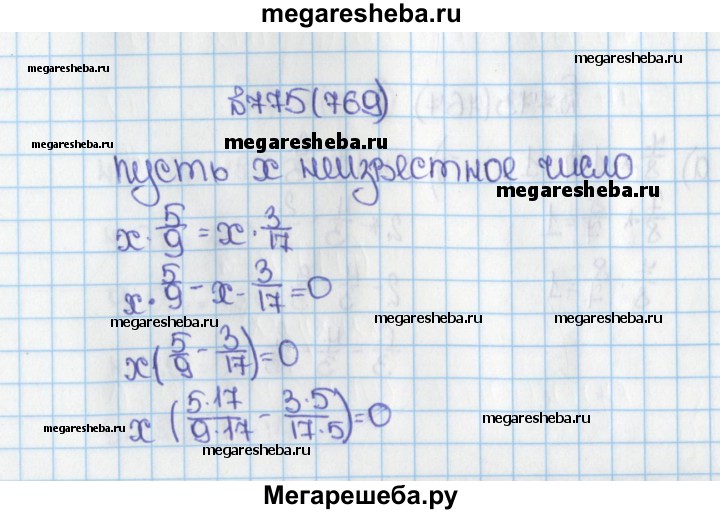 megaresheba.ru
megaresheba.ru
megaresheba.ru
В775(769)
megaresheba.ru
пусть x неизвестное число
megaresheba.ru
x · 5/9 = x · 3/17
x · 5/9 - x - 3/17 = 0
megaresheba.ru
megaresheba.ru
x(5/9 - 3/17) = 0
x (5·17/9·17 - 3·5/17·5) = 0
megaresheba.ru
megaresheba.ru
megaresheba.ru
Мегарешеба.ру